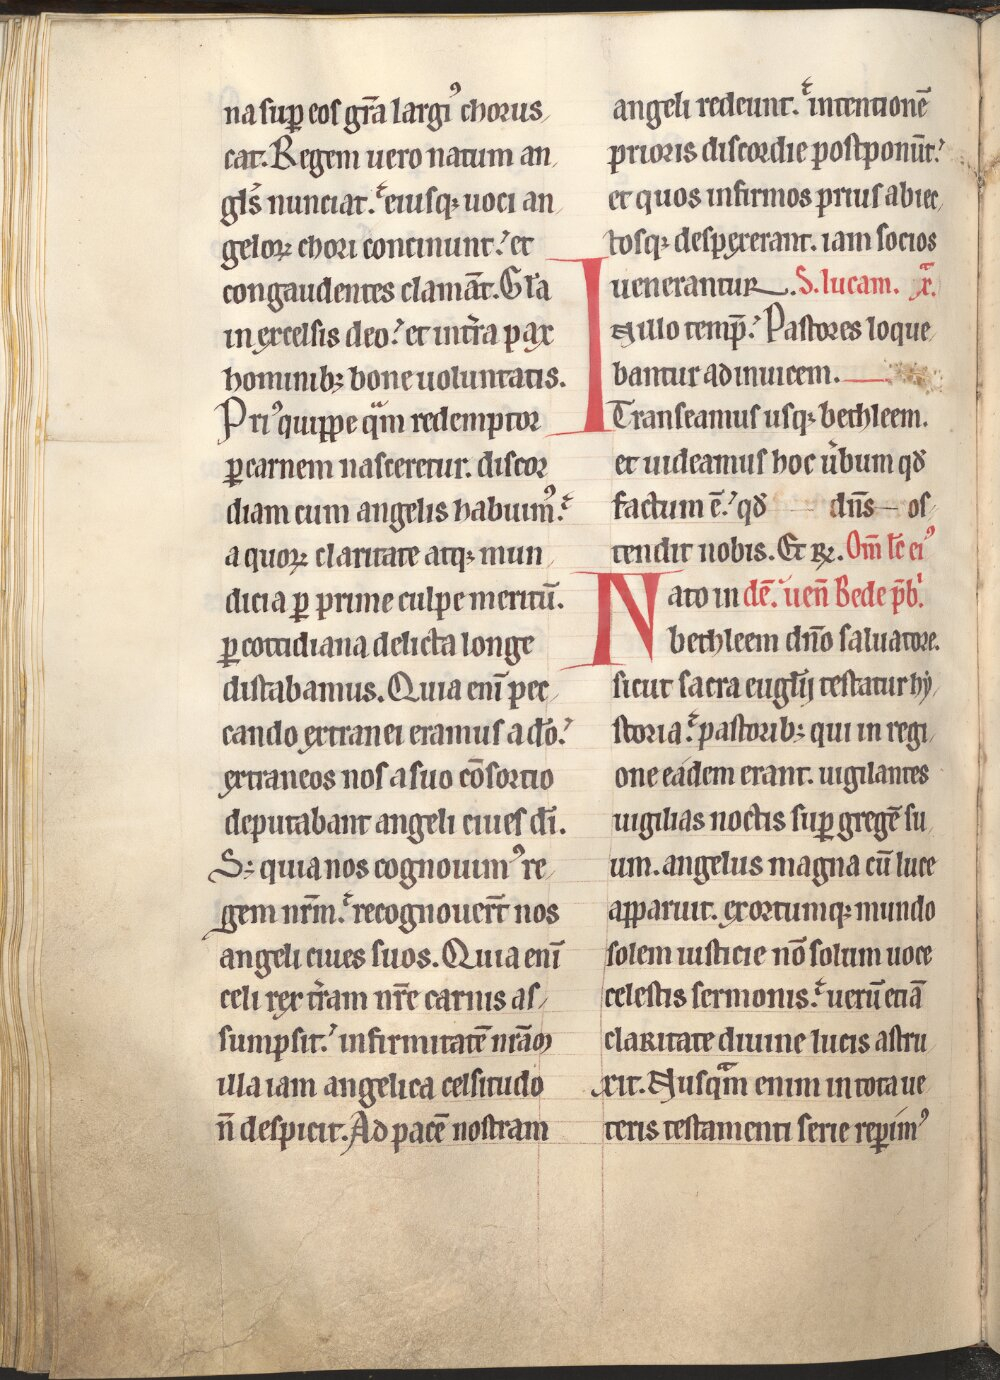 na sup̲ eos gr̄a largiꝰ chorus
cat. Regem uero natum an
gľs nunciat. eiusqꝫ uoci an
geloꝝ chori continunt. et
congaudentes clamāt. Gl̄a
in excelsis deo. et int̄ra pax
hominibꝫ bone uoluntatis.
Priꝰ quippe qͣm redemptor
ꝑ carnem nasceretur. discor
diam cum angelis habuimꝰ.
a quoꝝ claritate atqꝫ mun
dicia ꝑ prime culpe meritū.
ꝑ cottidiana delicta longe
distabamus. Quia enī pec
cando extranei eramus a do̅.
extraneos nos a suo cōsortio
deputabant angeli ciues dī.
Sꝫ quia nos cognouimꝰ re
gem nr̄m. recognouer̄t nos
angeli ciues suos. Quia enī
celi rex t̄ram nr̄e carnis as
sumpsit. infirmitatē nrāꝫ
illa iam angelica celsitudo
n̄ despicit. Ad pacē nostram
angeli redeunt. intentionē
prioris discordie postponūt.
et quos infirmos prius abiec
tosqꝫ despexerant. iam socios
uenerantur. S. lucam. xͣ.
In illo temp̄. Pastores loque
bantur adinuicem.
Transeamus usqꝫ bethleem.
et uideamus hoc u̅bum qd̄
factum ē. qd̄ dn̄s os
tendit nobis. Et R. Om̄ lc̄ eiꝰ
Nato in dē. uen̄ Bede p̄bͥ.
bethleem dn̄o saluatore.
sicut sacra eugl̄ij testatur hy
storia. pastoribꝫ qui in regi
one eadem erant. uigilantes
uigilias noctis sup̲ gregē su
um. angelus magna cū luce
apparuit. exortumqꝫ mundo
solem iusticie nō solum uoce
celestis sermonis. uerū etiā
claritate diuine lucis astru
xit. Nusqͣm enim in tota ue
teris testamenti serie rep̲imꝰ